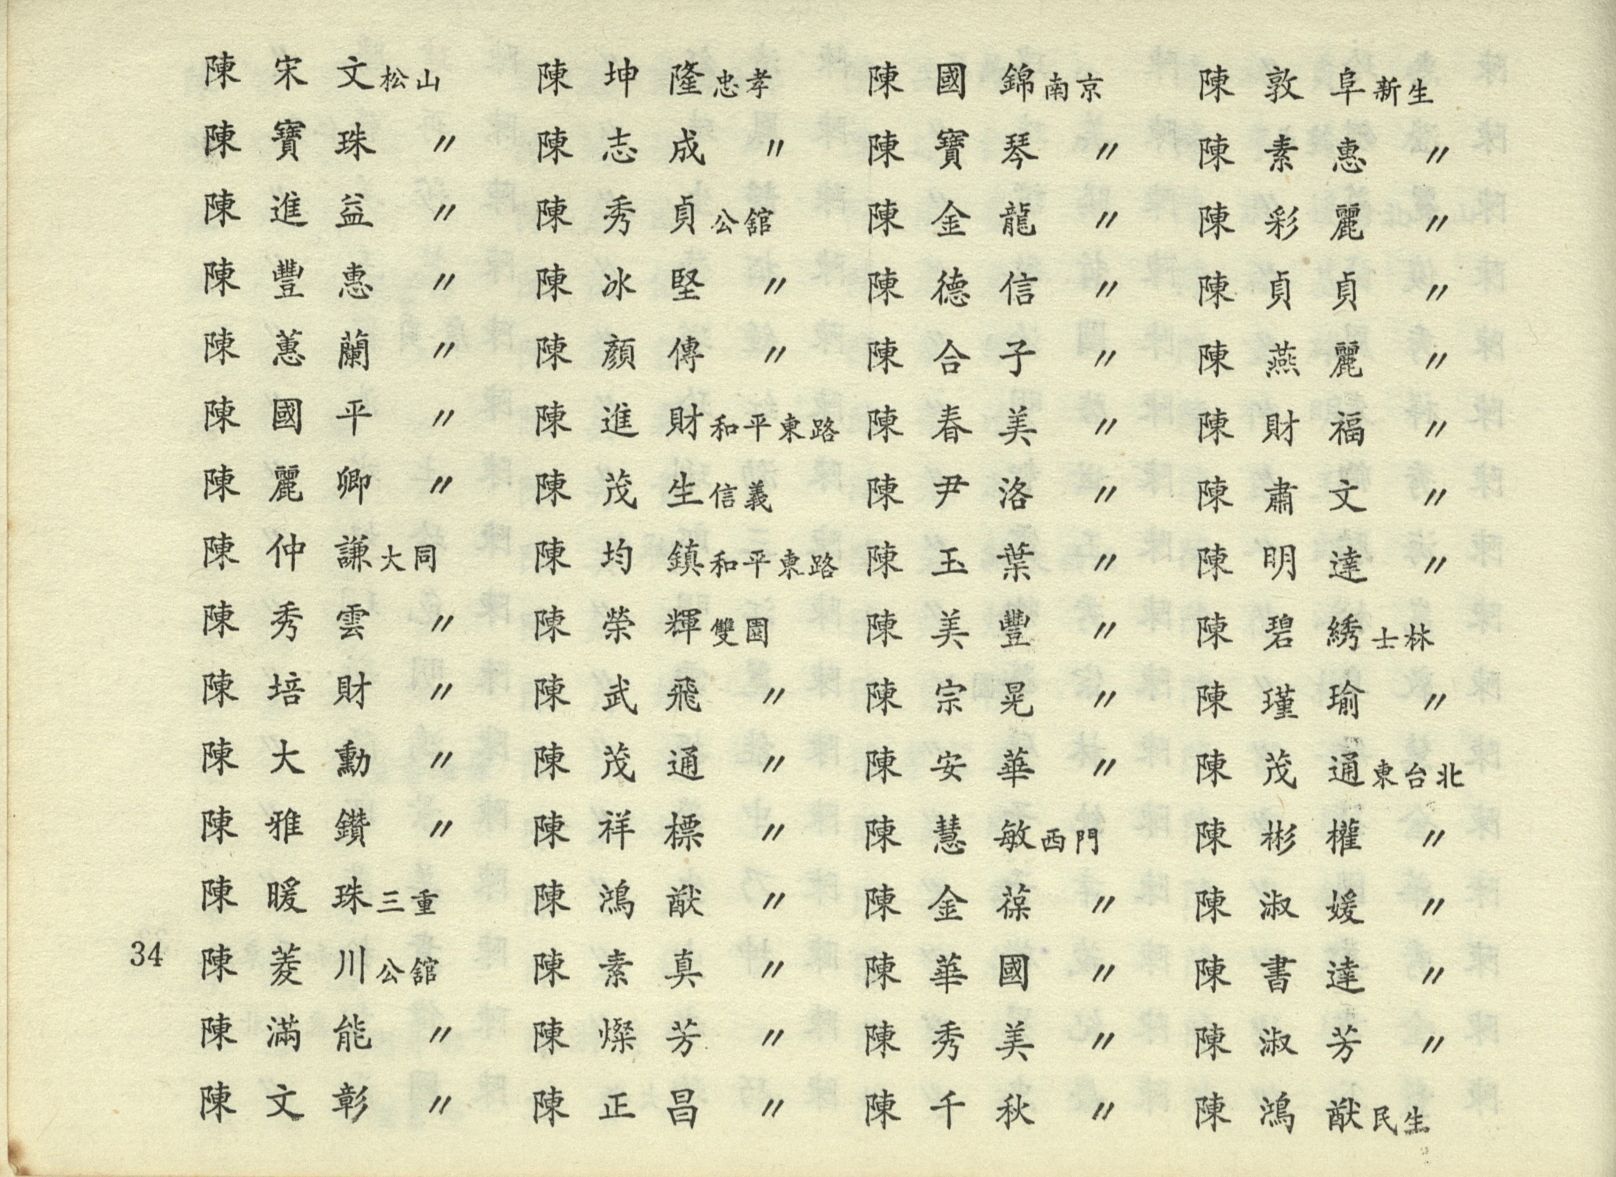 陳宋文松山
陳寶珠〃
陳進益〃
陳豐惠〃
陳蕙蘭〃
陳國平〃
陳麗卿〃
陳仲謙大同
陳秀雲〃
陳培財〃
陳大勳〃
陳雅鑽〃
陳暖珠三重
陳菱川公舘
陳滿能〃
陳文彰〃
陳坤隆忠孝
陳志成〃
陳秀貞公舘
陳冰堅〃
陳顏傳〃
陳進財和平東路
陳茂生信義
陳均鎮和平東路
陳榮輝雙園
陳武飛〃
陳茂通〃
陳祥標〃
陳鴻猷〃
陳素真〃
陳燦芳〃
陳正昌〃
陳國錦南京
陳寶琴〃
陳金龍〃
陳德信〃
陳合子〃
陳春美〃
陳尹洛〃
陳玉葉〃
陳美豐〃
陳宗晃〃
陳安華〃
陳慧敏西門
陳金葆〃
陳華國〃
陳秀美〃
陳千秋〃
陳敦阜新生
陳素惠〃
陳彩麗〃
陳貞貞〃
陳燕麗〃
陳財福〃
陳肅文〃
陳明達〃
陳碧綉士林
陳瑾瑜〃
陳茂通東台北
陳彬權〃
陳淑媛〃
陳書達〃
陳淑芳〃
陳鴻猷民生
34